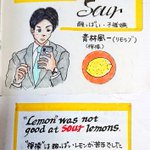 Sour
酸っぱい・不機嫌
青林風一(リモップ)
(檸檬)
"Lemon" was not
good at sour lemons.
"檸檬"は酸っぱいレモンが苦手でした